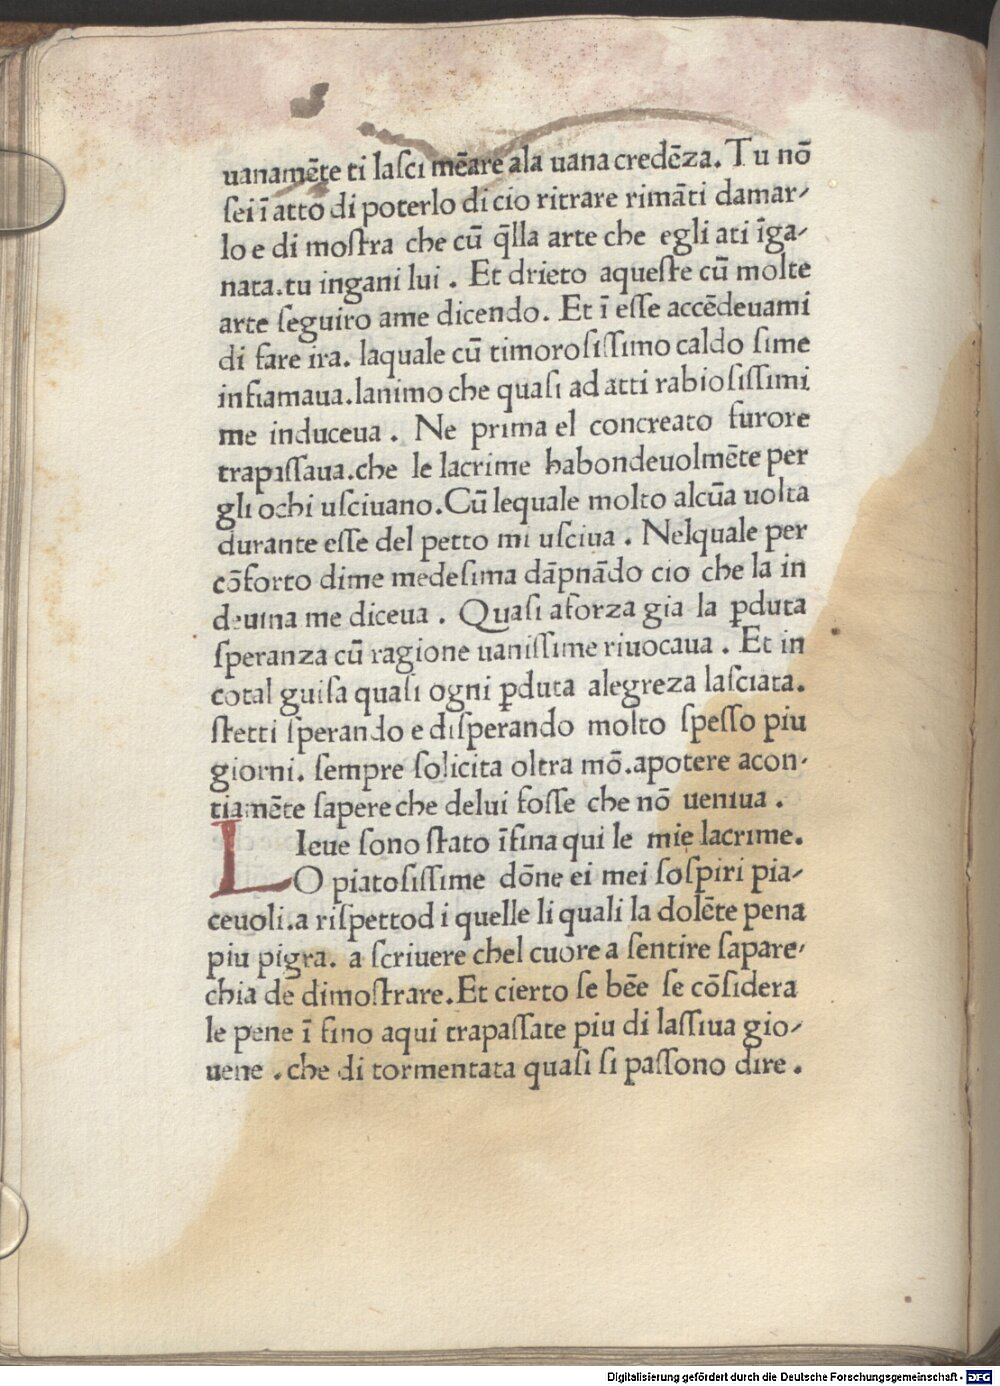 uanamēte ti laſci mēare ala uana credēza. Tu nō
ſei ī atto di poterlo di cio ritrare rimāti damar-
lo e di moſtra che cū q̄lla arte che egli ati īga-
nata.tu ingani lui . Et drieto aqueſte cū molte
arte ſeguiro ame dicendo. Et ī eſſe accēdeuami
di fare ira. laquale cū timoroſiſſimo caldo ſime
infiamaua.lanimo che quaſi ad atti rabioſiſſimi
me induceua . Ne prima el concreato furore
trapaſſaua.che le lacrime habondeuolmēte per
gli ochi uſciuano.Cū lequale molto alcūa uolta
durante eſſe del petto mi uſciua . Nelquale per
cōforto dime medeſima dāpnādo cio che la in
deuina me diceua . Quaſi aforza gia la ꝑduta
ſperanza cū ragione uaniſſime riuocaua . Et in
cotal guiſa quaſi ogni ꝑduta alegreza laſciata.
ſtetti ſperando e diſperando molto ſpeſſo piu
giorni. ſempre ſolicita oltra mō.apotere acon-
tiamēte ſapere che delui foſſe che nō ueniua .
L Ieue ſono ſtato īfina qui le mie lacrime.
O piatoſiſſime dōne ei mei ſoſpiri pia-
ceuoli.a riſpettod i quelle li quali la dolēte pena
piu pigra. a ſcriuere chel cuore a ſentire ſapare-
chia de dimoſtrare.Et cierto ſe bēe ſe cōſidera
le pene ī fino aqui trapaſſate piu di laſſiua gio-
uene .che di tormentata quaſi ſi paſſono dire .
Digitalisierung gefördert durch die Deutsche Forschungsgemeinschaft - DFG